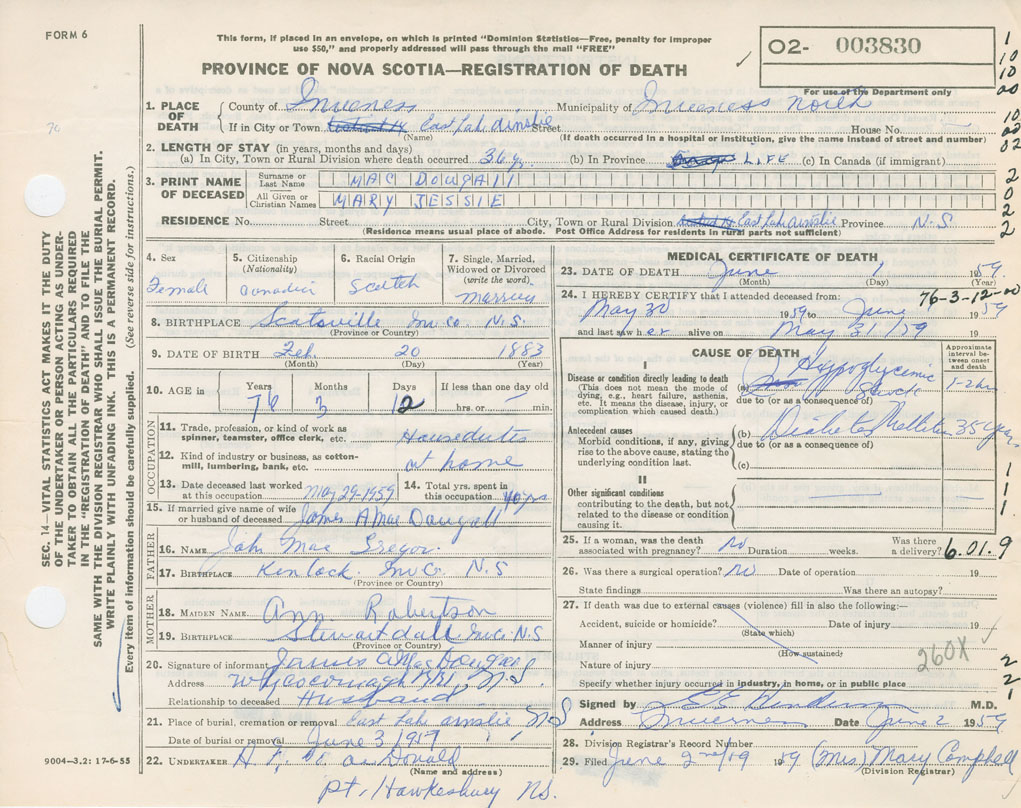 FORM 6
This form, if placed in an envelope, on which is printed "Dominion Statistics—Free, penalty for improper
use $50," and properly addressed will pass through the mail "FREE"
PROVINCE OF NOVA SCOTIA—REGISTRATION OF DEATH
O2- 003830
For use of the Department only
1. PLACE OF DEATH
County of Inverness Municipality of Inverness North
If in City or Town East Lake Ainslie Street House No.
(Name) (If death occurred in a hospital or institution, give the name instead of street and number)
2. LENGTH OF STAY (in years, months and days)
(a) In City, Town or Rural Division where death occurred 36 yrs. (b) In Province LIFE (c) In Canada (if immigrant)
3. PRINT NAME OF DECEASED
Surname or Last Name MAC DOUGALL
All Given or Christian Names MARY JESSIE
RESIDENCE No. Street City, Town or Rural Division East Lake Ainslie Province N.S.
(Residence means usual place of abode. Post Office Address for residents in rural parts not sufficient)
4. Sex Female
5. Citizenship (Nationality) Canadian
6. Racial Origin Scotch
7. Single, Married, Widowed or Divorced (write the word) Married
8. BIRTHPLACE Scotsville Inv. Co N.S.
(Province or Country)
9. DATE OF BIRTH Feb. 20 1883
(Month) (Day) (Year)
10. AGE in Years 76 Months 3 Days 12 If less than one day old
hrs. or min.
OCCUPATION
11. Trade, profession, or kind of work as spinner, teamster, office clerk, etc. Houseduties
12. Kind of industry or business, as cotton-mill, lumbering, bank, etc. at home
13. Date deceased last worked at this occupation May 29-1959 14. Total yrs. spent in this occupation 40 yrs
15. If married give name of wife or husband of deceased James A Mac Dougall
FATHER
16. NAME John Mac Gregor
17. BIRTHPLACE Kenlock Inv. C. N.S
(Province or Country)
MOTHER
18. MAIDEN NAME Ann Robertson
19. BIRTHPLACE Stewartdale Inv. Co N.S
(Province or Country)
20. Signature of informant James A Mac Dougall
Address Whycocomagh RR1, N.S.
Relationship to deceased Husband
21. Place of burial, cremation or removal East Lake Ainslie N S
Date of burial or removal June 3
22. UNDERTAKER
(Name and address)
pt. Hawkesbury NS.
9004—3.2: 17-6-55
MEDICAL CERTIFICATE OF DEATH
23. DATE OF DEATH June 1 1959.
(Month) (Day) (Year)
76-3-12-00
24. I HEREBY CERTIFY that I attended deceased from:
May 30 1959 to June 1959
and last saw her alive on May 31/59 19
CAUSE OF DEATH
Approximate interval between onset and death
I
Disease or condition directly leading to death
(This does not mean the mode of dying, e.g., heart failure, asthenia, etc. It means the disease, injury, or complication which caused death.)
(a) Hypoglycemic Shock 1-2 hrs
due to (or as a consequence of)
Antecedent causes
Morbid conditions, if any, giving rise to the above cause, stating the underlying condition last.
(b) Diabetes Mellitus 35 years
due to (or as a consequence of)
(c)
II
Other significant conditions
contributing to the death, but not related to the disease or condition causing it.
25. If a woman, was the death associated with pregnancy? No Duration weeks. Was there a delivery? 6.01.9
26. Was there a surgical operation? No Date of operation 19
State findings Was there an autopsy?
27. If death was due to external causes (violence) fill in also the following:—
Accident, suicide or homicide? Date of injury 19
(State which)
Manner of injury
(How sustained)
Nature of injury 260X
Specify whether injury occurred in industry, in home, or in public place
Signed by M.D.
Address Inverness Date June 2 1959
28. Division Registrar's Record Number
29. Filed June 2nd/59 1959 (Mrs) Mary Campbell
(Division Registrar)
SEC. 14—VITAL STATISTICS ACT MAKES IT THE DUTY
OF THE UNDERTAKER OR PERSON ACTING AS UNDER-
TAKER TO OBTAIN ALL THE PARTICULARS REQUIRED
IN THE "REGISTRATION OF DEATH" AND TO FILE THE
SAME WITH THE DIVISION REGISTRAR WHO SHALL ISSUE THE BURIAL PERMIT.
WRITE PLAINLY WITH UNFADING INK. THIS IS A PERMANENT RECORD.
Every item of information should be carefully supplied. (See reverse side for instructions.)
1
10
10
00
10
00
02
2
0
2
2
1
1
1
2
2
1